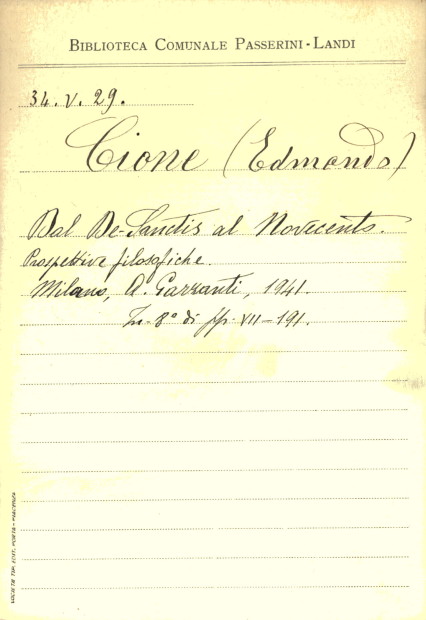 BIBLIOTECA COMUNALE PASSERINI-LANDI
34. V. 29.
Cione (Edmondo)
Dal De-Sanctis al Novecento.
Prospettive filosofiche.
Milano, A. Garzanti, 1941.
In-8° di pp. VII-191.